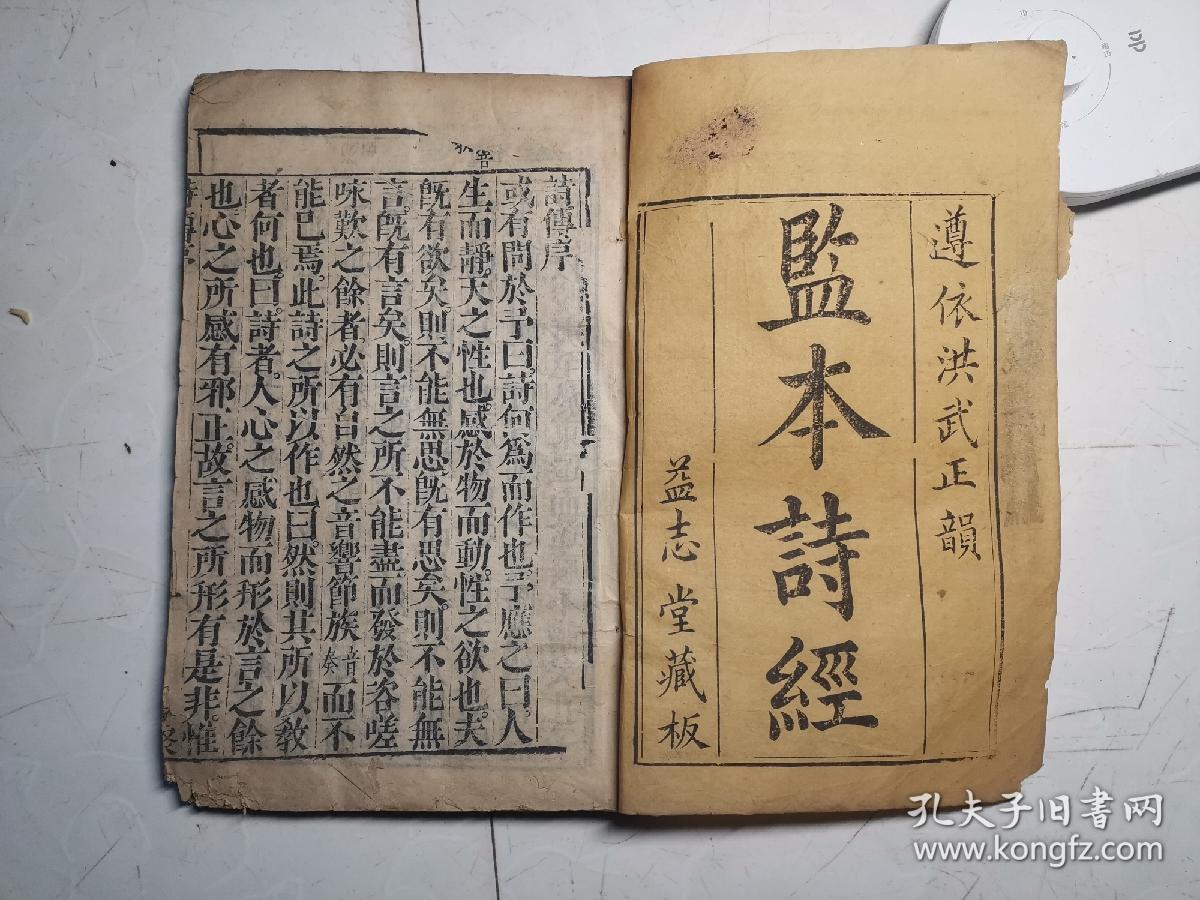 遵依洪武正韻
監本詩經
益志堂藏板
詩傳序
或有問於予曰。詩何為而作也。予應之曰。人
生而靜。天之性也。感於物而動。性之欲也。夫
既有欲矣。則不能無思。既有思矣。則不能無
言。既有言矣。則言之所不能盡。而發於咨嗟
咏歎之餘者。必有自然之音響節族音奏而不
能已焉。此詩之所以作也。曰。然則其所以教
者何也。曰。詩者。人心之感物而形於言之餘
也。心之所感有邪正。故言之所形有是非。惟
孔夫子旧书网
www.kongfz.com